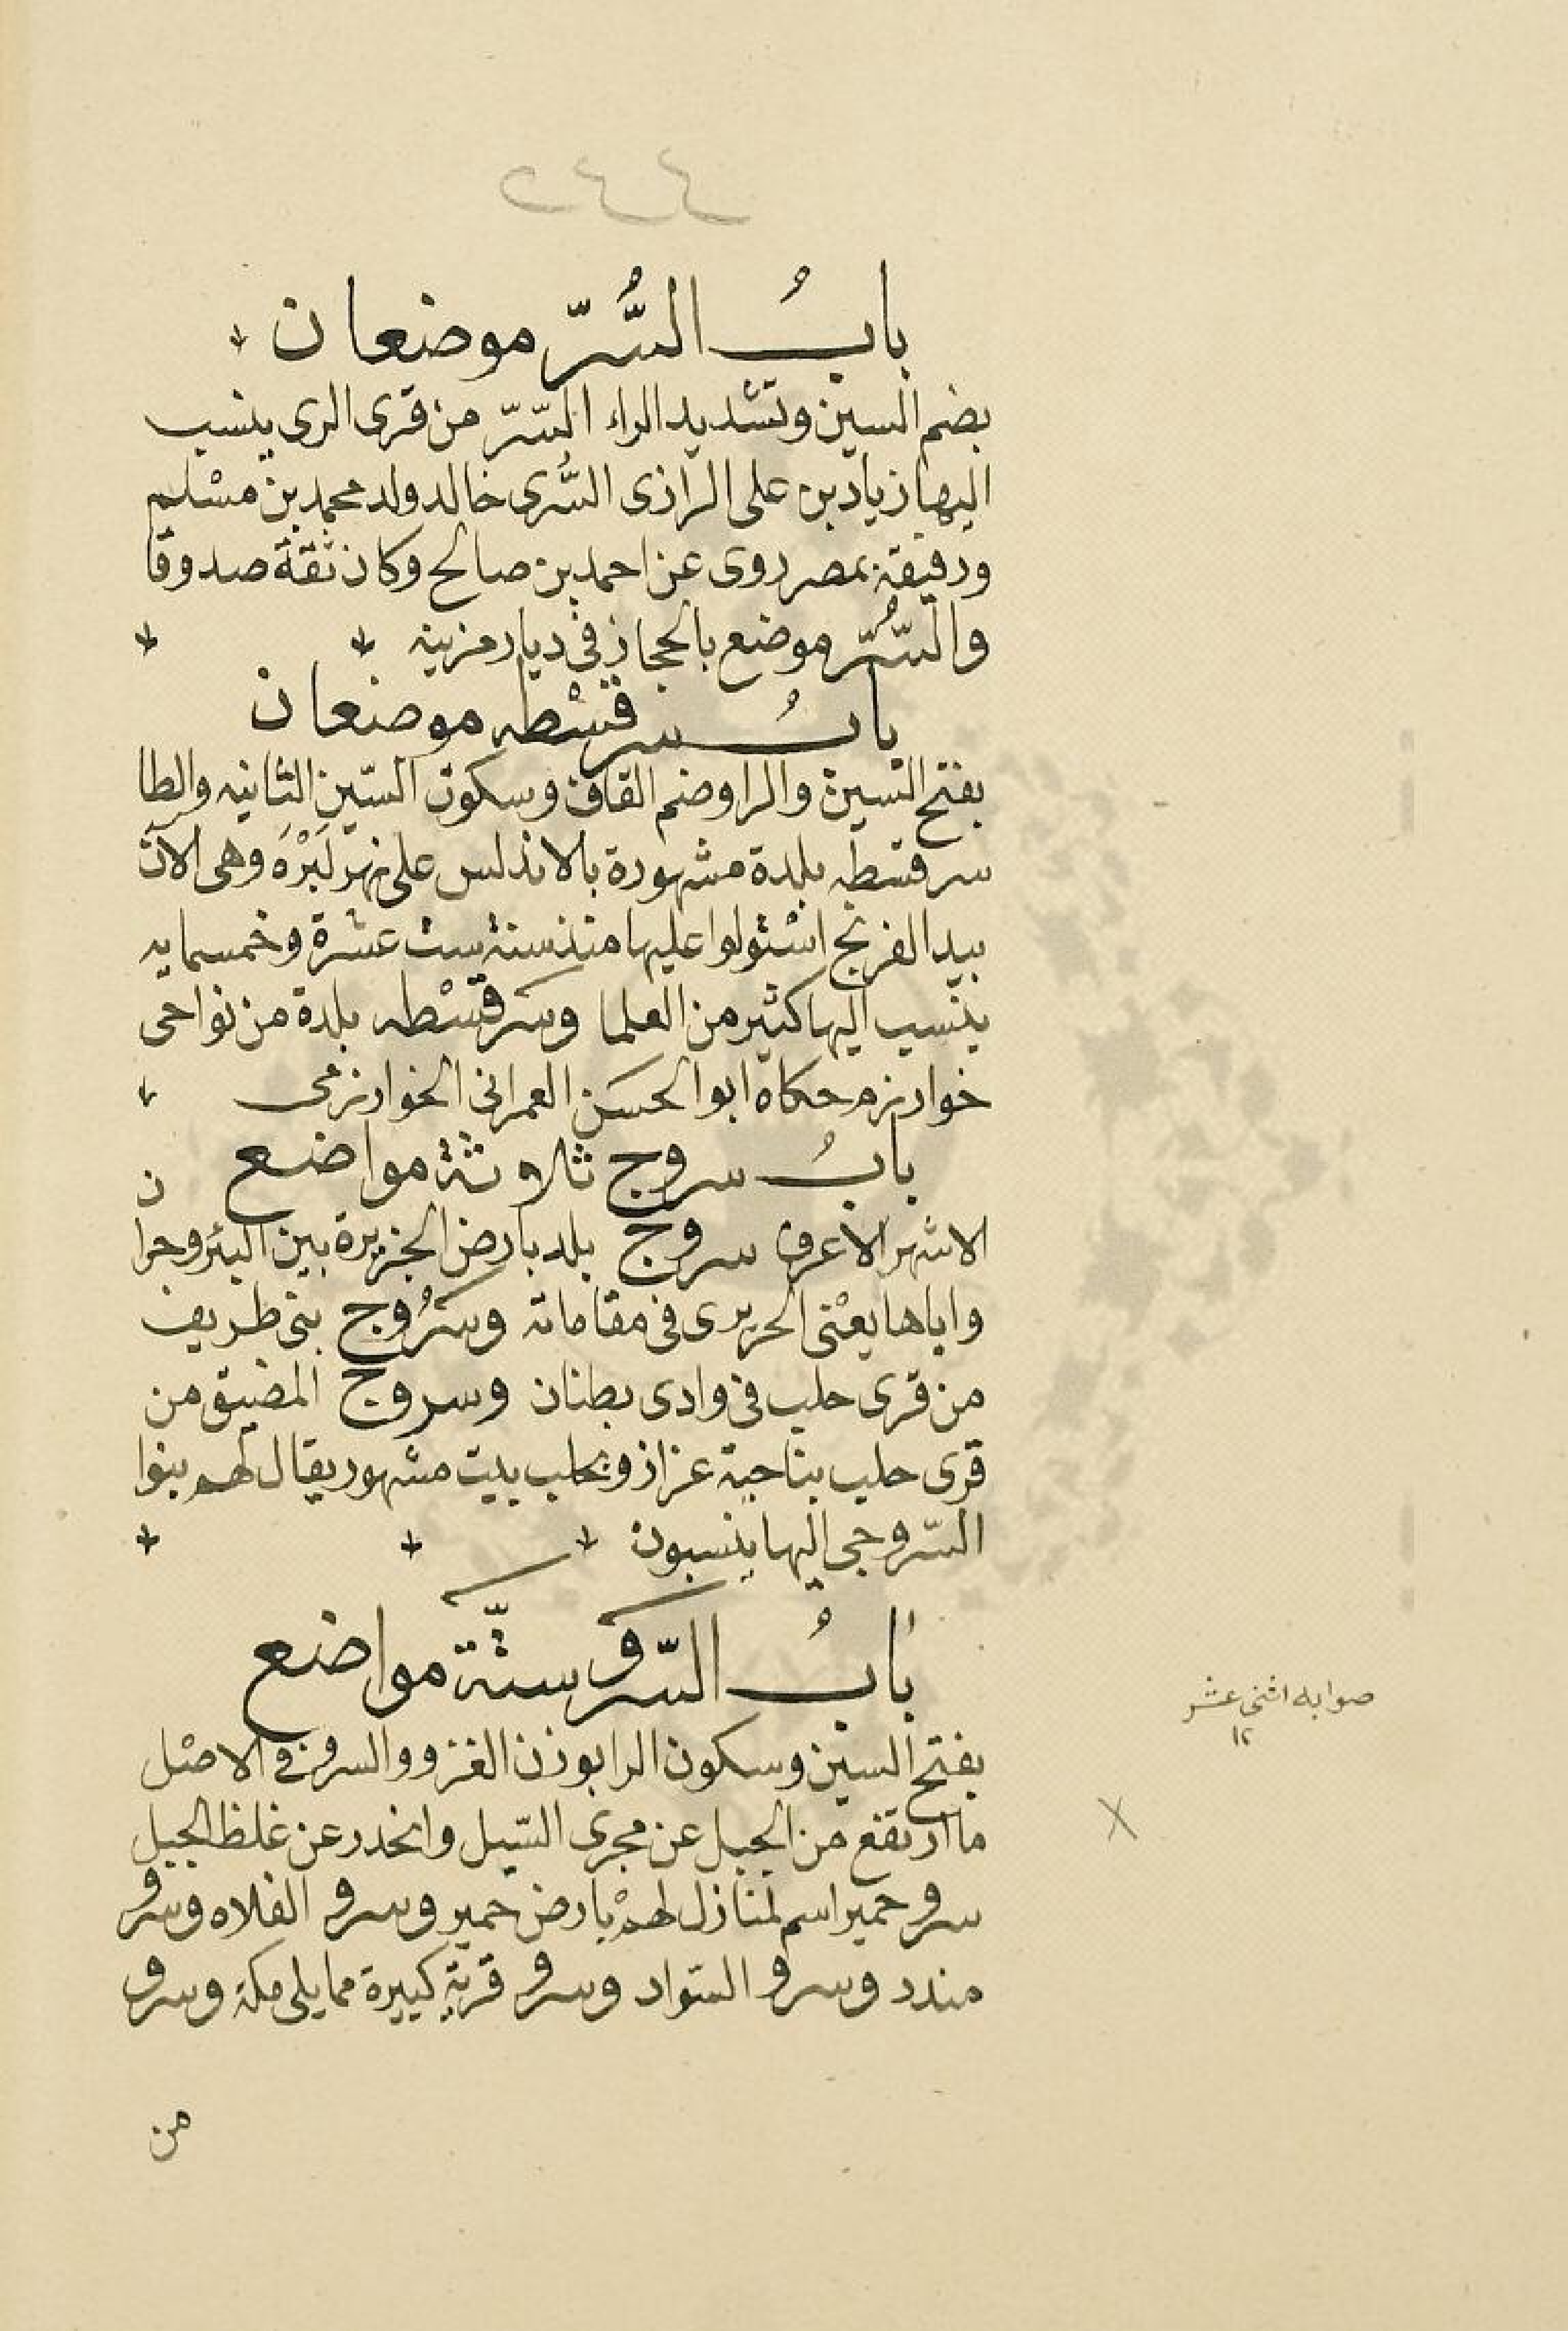 ٢٤٤
بابُ السُّرّ موضعان
بضم السين وتشديد الراء السّرّ من قرى الرى ينسب
اليها زياد بن على الرازى السُّرى خالد ولد محمد بن مسلم
ورفيقة بمصر روى عن احمد بن صالح وكان ثقة صدوقا
والسُّرّ موضع بالحجاز فى ديار مزينه
بابُ سرقسْطه موضعان
بفتح السين والرا وضم القاف وسكون السّين الثانيه والطا
سرقسطه بلدة مشهورة بالاندلس على نهر لَبْرُه وهى الآن
بيد الفرنج اسْتولوا عليها منذ سنة ست عشرة وخمسمايه
ينسب اليها كثير من العلما وسَرقسْطه بلدة من نواحى
خوارزم حكاه ابو الحسَن العمرانى الخوارزمى
بابُ سروج ثلاوثة مواضع
الاشهر الاعرف سروج بلد بارض الجزيرة بين البئر وحرا ن
واياها يعْنى الحريرى فى مقاماته وسَرُوج بنى طريف
من قرى حلب فى وادى بطنان وسروج المضيق من
قرى حلب بناحية عزاز وبحلب بيت مشهور يقال لهم بنوا
السّروجى اليها ينسبون
بابُ السَّرو ستَّة مواضع
صوابه اثنى عشر
١٢
بفتح السين وسكون الرا بوزن الغزو والسرو فى الاصْل
ما ارتفع من الجبل عن مجرى السّيل وانحدر عن غلظ الجبل
سرو حمير اسم لمنازل لهمْ بارض حمير وسرو الفلاه وسرو
مندد وسرو السّواد وسرو قرية كبيرة مما يلى مكة وسرو
من